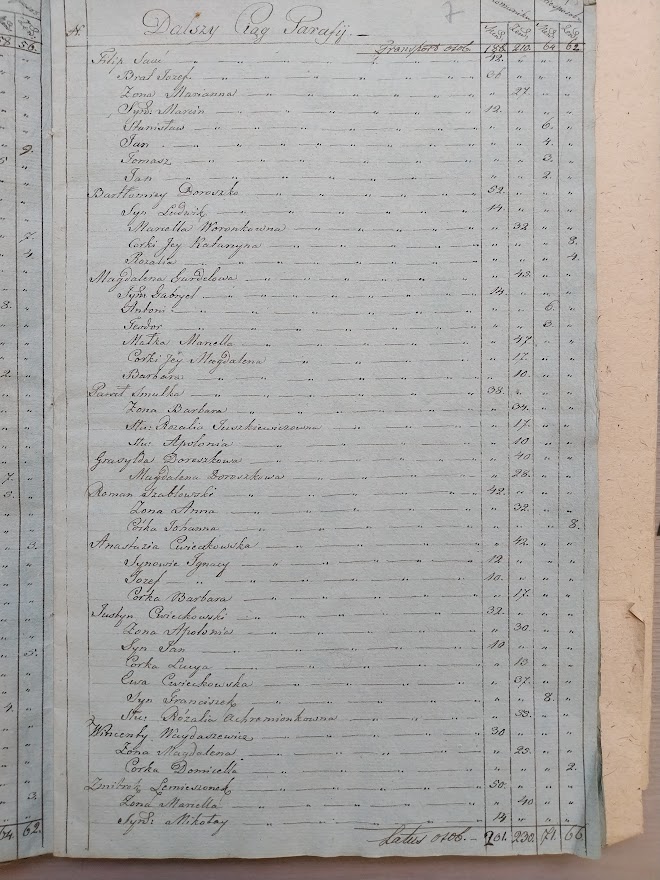 7
N. Dalszy Ciąg Parafij.
Męż. Żeń. Męż. Żeń.
Transport osob. 186. 210. 64. 62.
Filip Sawi „ 42. „ „ „
Brat Jozef. „ 36 „ „ „
Zona Marianna „ „ 27. „ „
Syn: Marcin „ 12. „ „ „
Stanisław „ „ „ 6. „
Jan „ „ „ 4. „
Tomasz „ „ „ 3. „
Jan „ „ „ 2. „
Bartłomiey Doroszko „ 52. „ „ „
Syn Ludwik „ 14. „ „ „
Maryella Woronkowna „ „ 32. „ „
Corki Jey Katarzyna „ „ „ „ 8.
Rozalia „ „ „ „ 4.
Magdalena Gurdelowa „ „ 43. „ „
Syn: Gabryel „ 14. „ „ „
Antoni „ „ „ 6. „
Teodor „ „ „ 3. „
Matka Maryella „ „ 47. „ „
Corki Jey Magdalena „ „ 12. „ „
Barbara „ „ 10. „ „
Paweł Smułka „ 38. „ „ „
Zona Barbara „ „ 34. „ „
Słu: Rozalia Juszkiewiczowna „ „ 17. „ „
Słu: Apolonia „ „ 10 „ „
Grasylda Doroszkowa „ „ 40 „ „
Magdalena Doroszkowa „ „ 28. „ „
Roman Szabłowski „ 42. „ „ „
Zona Anna „ „ 32. „ „
Corka Johanna „ „ „ „ 8.
Anastazia Cwieczkowska „ „ 42. „ „
Synowie Ignacy „ 12 „ „ „
Jozef „ 10. „ „ „
Corka Barbara „ „ 17. „ „
Justyn Cwieczkowski „ 32. „ „ „
Zona Apolonia „ „ 30. „ „
Syn Jan „ 10 „ „ „
Corka Lucya „ „ 13. „ „
Ewa Cwieczkowska „ „ 37. „ „
Syn Franciszek „ „ „ 8. „
Słu: Rózalia Achremionkowna „ „ 33. „ „
Wincenty Waydaszewicz „ 30 „ „ „
Zona Magdalena „ „ 23. „ „
Corka Domicella „ „ „ „ 2.
Zmitrok Lemieszonek „ 50. „ „ „
Zona Maryella „ „ 40 „ „
Syn: Mikołay „ 14 „ „ „
Latus osob. 201. 230. 71. 66